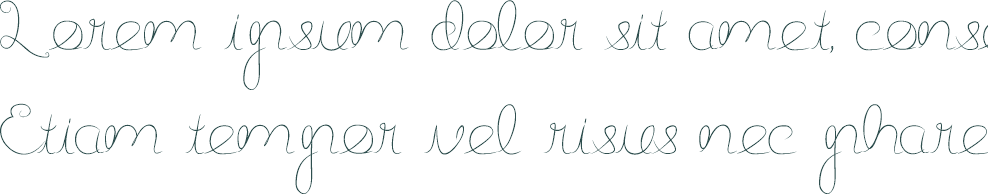 Lorem ipsum dolor sit amet, conse
Etiam tempor vel risus nec phare